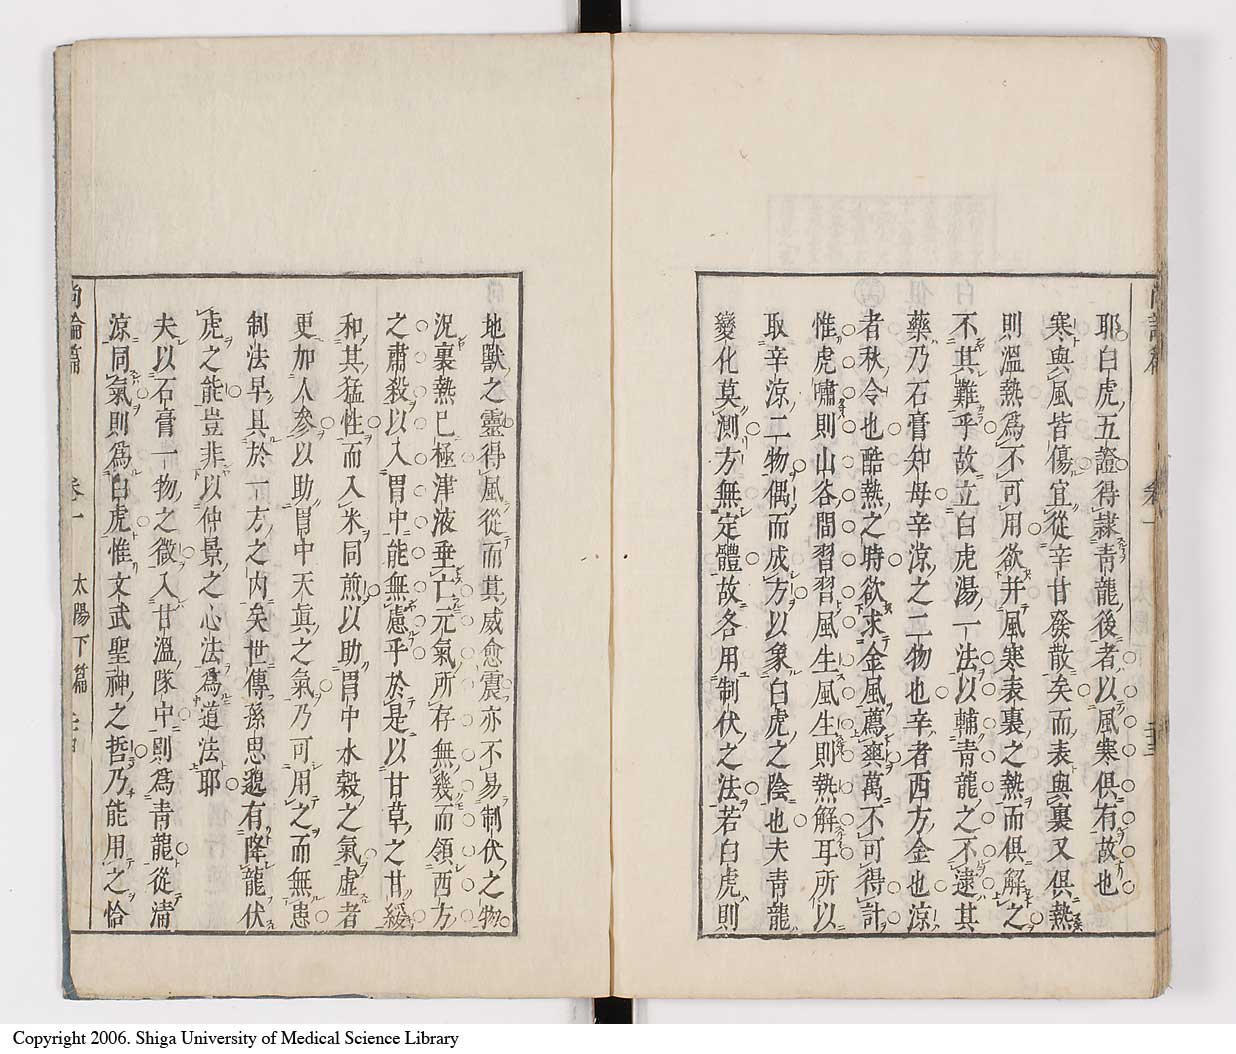 耶白虎五證得隷靑龍後者以風寒俱有故也
寒與風皆傷宜從辛甘發散矣而表與裏又俱熱
則溫熱爲不可用欲并風寒表裏之熱而俱解之
不其難乎故立白虎湯一法以輔靑龍之不逮其
藥乃石膏知母辛涼之二物也辛者西方金也涼
者秋令也酷熱之時欲求金風薦爽萬不可得計
惟虎嘯則山谷間習習風生風生則熱解耳所以
取辛涼二物偶而成方以象白虎之陰也夫靑龍
變化莫測方無定體故各用制伏之法若白虎則
地獸之靈得風從而其威愈震亦不易制伏之物
況裏熱已極津液垂亡元氣所存無幾而領西方
之肅殺以入胃中能無慮乎於是以甘草之甘緩
和其猛性而入米同煎以助胃中水穀之氣虛者
更加人參以助胃中天眞之氣乃可用之而無患
制法早具於一方之內矣世傳孫思邈有降龍伏
虎之能豈非以仲景之心法爲道法耶
夫以石膏一物之微入甘溫隊中則爲靑龍從淸
涼同氣則爲白虎惟文武聖神之哲乃能用之恰
尙論篇 卷一 太陽下篇
Copyright 2006. Shiga University of Medical Science Library